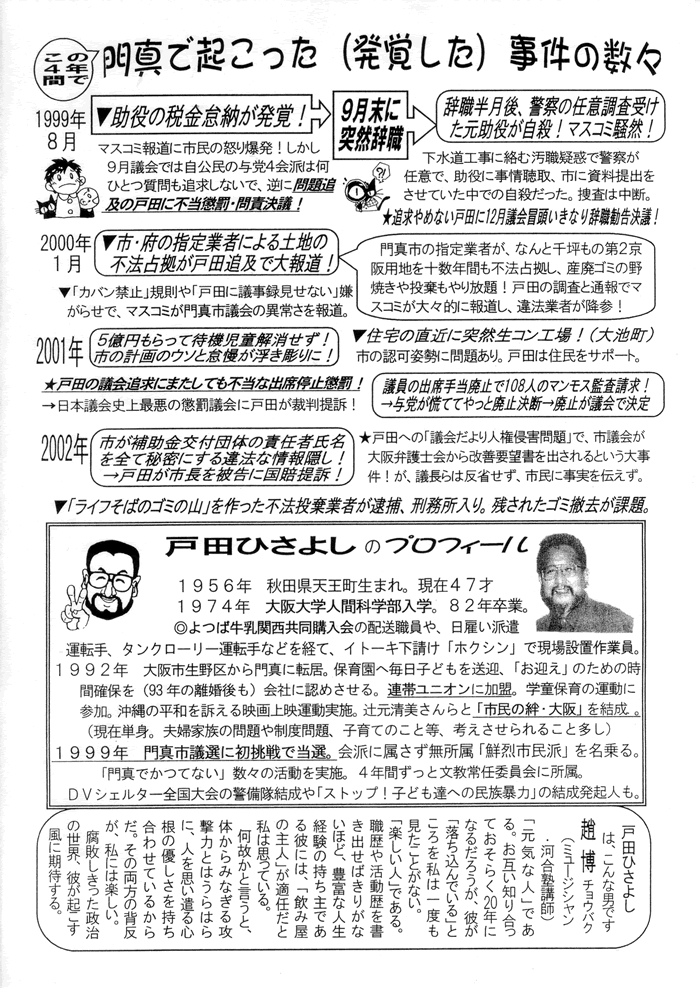 この
4年
間で
門真で起こった（発覚した）事件の数々
1999年
8月
▼助役の税金怠納が発覚！
9月末に
突然辞職
辞職半月後、警察の任意調査受け
た元助役が自殺！マスコミ騒然！
マスコミ報道に市民の怒り爆発！しかし
9月議会では自公民の与党4会派は何
ひとつ質問も追求しないで、逆に問題追
及の戸田に不当懲罰・問責決議！
下水道工事に絡む汚職疑惑で警察が
任意で、助役に事情聴取、市に資料提出を
させていた中での自殺だった。捜査は中断。
★追求やめない戸田に12月議会冒頭いきなり辞職勧告決議！
2000年
1月
▼市・府の指定業者による土地の
不法占拠が戸田追及で大報道！
門真市の指定業者が、なんと千坪もの第2京
阪用地を十数年間も不法占拠し、産廃ゴミの野
焼きや投棄もやり放題！戸田の調査と通報でマ
スコミが大々的に報道し、違法業者が降参！
▼「カバン禁止」規則や「戸田に議事録見せない」嫌
がらせで、マスコミが門真市議会の異常さを報道。
2001年
5億円もらって待機児童解消せず！
市の計画のウソと怠慢が浮き彫りに！
▼住宅の直近に突然生コン工場！（大池町）
市の認可姿勢に問題あり。戸田は住民をサポート。
★戸田の議会追求にまたしても不当な出席停止懲罰！
→日本議会史上最悪の懲罰議会に戸田が裁判提訴！
議員の出席手当廃止で108人のマンモス監査請求！
→与党が慌ててやっと廃止決断→廃止が議会で決定
2002年
市が補助金交付団体の責任者氏名
を全て秘密にする違法な情報隠し！
→戸田が市長を被告に国賠提訴！
★戸田への「議会だより人権侵害問題」で、市議会が
大阪弁護士会から改善要望書を出されるという大事
件！が、議長らは反省せず、市民に事実を伝えず。
▼「ライフそばのゴミの山」を作った不法投棄業者が逮捕、刑務所入り。残されたゴミ撤去が課題。
戸田ひさよしのプロフィール
1956年　秋田県天王町生まれ。現在47才
1974年　大阪大学人間科学部入学。82年卒業。
◎よつば牛乳関西共同購入会の配送職員や、日雇い派遣
運転手、タンクローリー運転手などを経て、イトーキ下請け「ホクシン」で現場設置作業員。
1992年　大阪市生野区から門真に転居。保育園へ毎日子どもを送迎、「お迎え」のための時
間確保を（93年の離婚後も）会社に認めさせる。連帯ユニオンに加盟。学童保育の運動に
参加。沖縄の平和を訴える映画上映運動実施。辻元清美さんらと「市民の絆・大阪」を結成。
（現在単身。夫婦家族の問題や制度問題、子育てのこと等、考えさせられること多し）
1999年　門真市議選に初挑戦で当選。会派に属さず無所属「鮮烈市民派」を名乗る。
「門真でかつてない」数々の活動を実施。4年間ずっと文教常任委員会に所属。
DVシェルター全国大会の警備隊結成や「ストップ！子ども達への民族暴力」の結成発起人も。
戸田ひさよし
は、こんな男です
趙　博　チョウバク
（ミュージシャン
・河合塾講師）
「元気な人」であ
る。お互い知り合っ
ておそらく20年に
なるだろうが、彼が
「落ち込んでいる」と
ころを私は一度も
見たことがない。
「楽しい人」である。
職歴や活動歴を書
き出せばきりがな
いほど、豊富な人生
経験の持ち主であ
る彼には、「飲み屋
の主人」が適任だと
私は思っている。
何故かと言うと、
体からみなぎる攻
撃力とはうらはら
に、人を思い遣る心
根の優しさを持ち
合わせているから
だ。その両方の背反
が、私には楽しい。
腐敗しきった政治
の世界、彼が起こす
風に期待する。